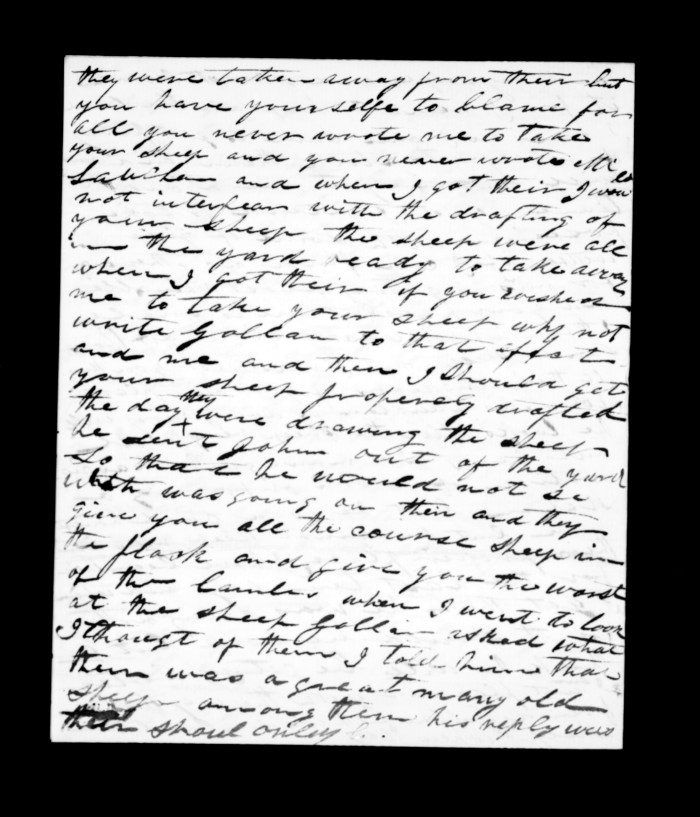 they were taken away from their but
you have yourselfe to blame for
all you never wrote me to take
your sheep and you never wrote Mc
and when I got their I
not interfear with the drafting of
your sheep the sheep were all
in the yard ready to take away
when I got their if you wished
me to take your sheep why not
write Gollan to that effect
and me and then I should got
your sheep properely drafted
the day they were drawing the sheep
he sent John out of the yard
so that he would not se
what was going on their and they
give you all the course sheep in
the flock and give you the worst
of the lambs when I went to look
at the sheep Gollan asked what
I thougt of them I told him that
their was a great many old
sheep among them his reply was
their only